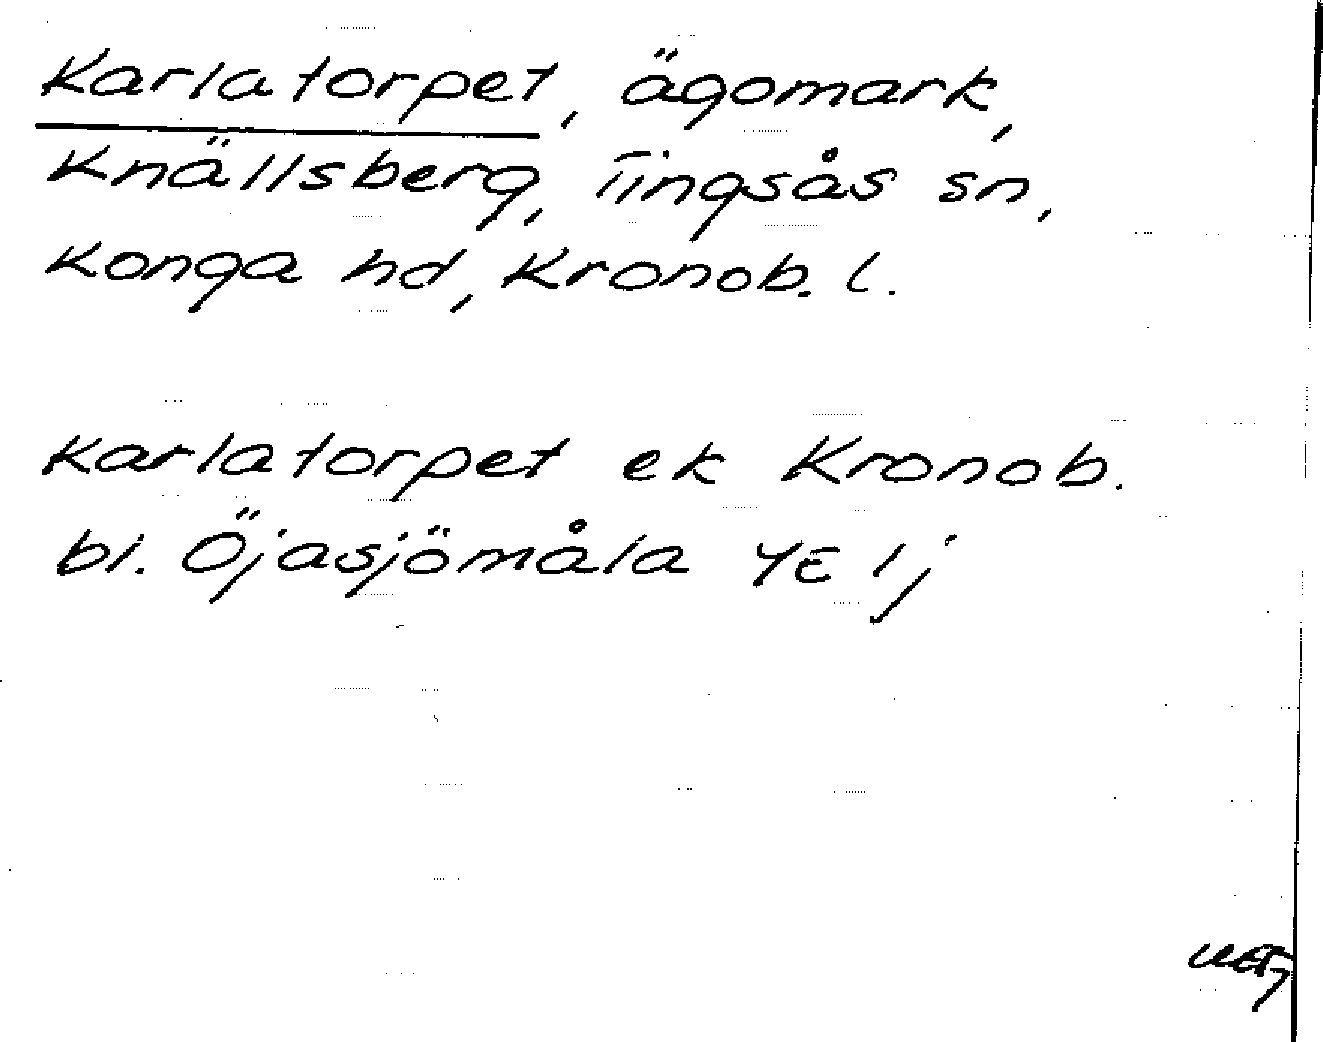 Karlatorpet, ägomark,
Knällsberg, Tingsås sn,
Konga hd, Kronob. l.
Karlatorpet ek Kronob.
bl. Öjasjömåla 4E 1j